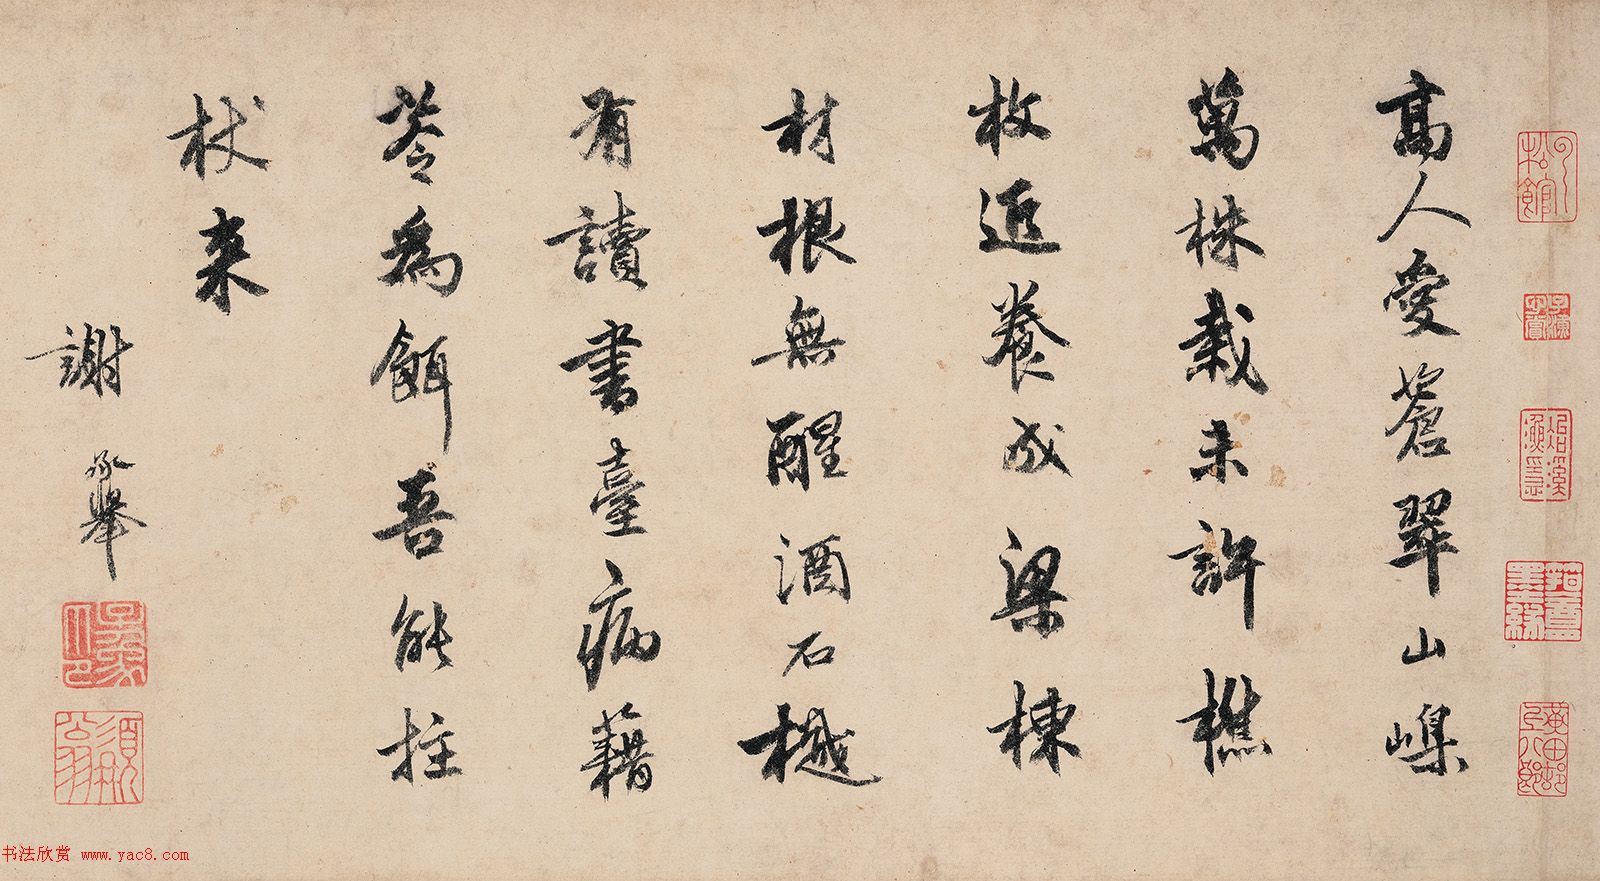 高人愛蒼翠山嵲
萬株栽未許樵
牧近養成梁棟
材根無醒酒石樾
有讀書臺病藉
苓為餌吾能拄
杖来
謝承舉
书法欣赏 www.yac8.com